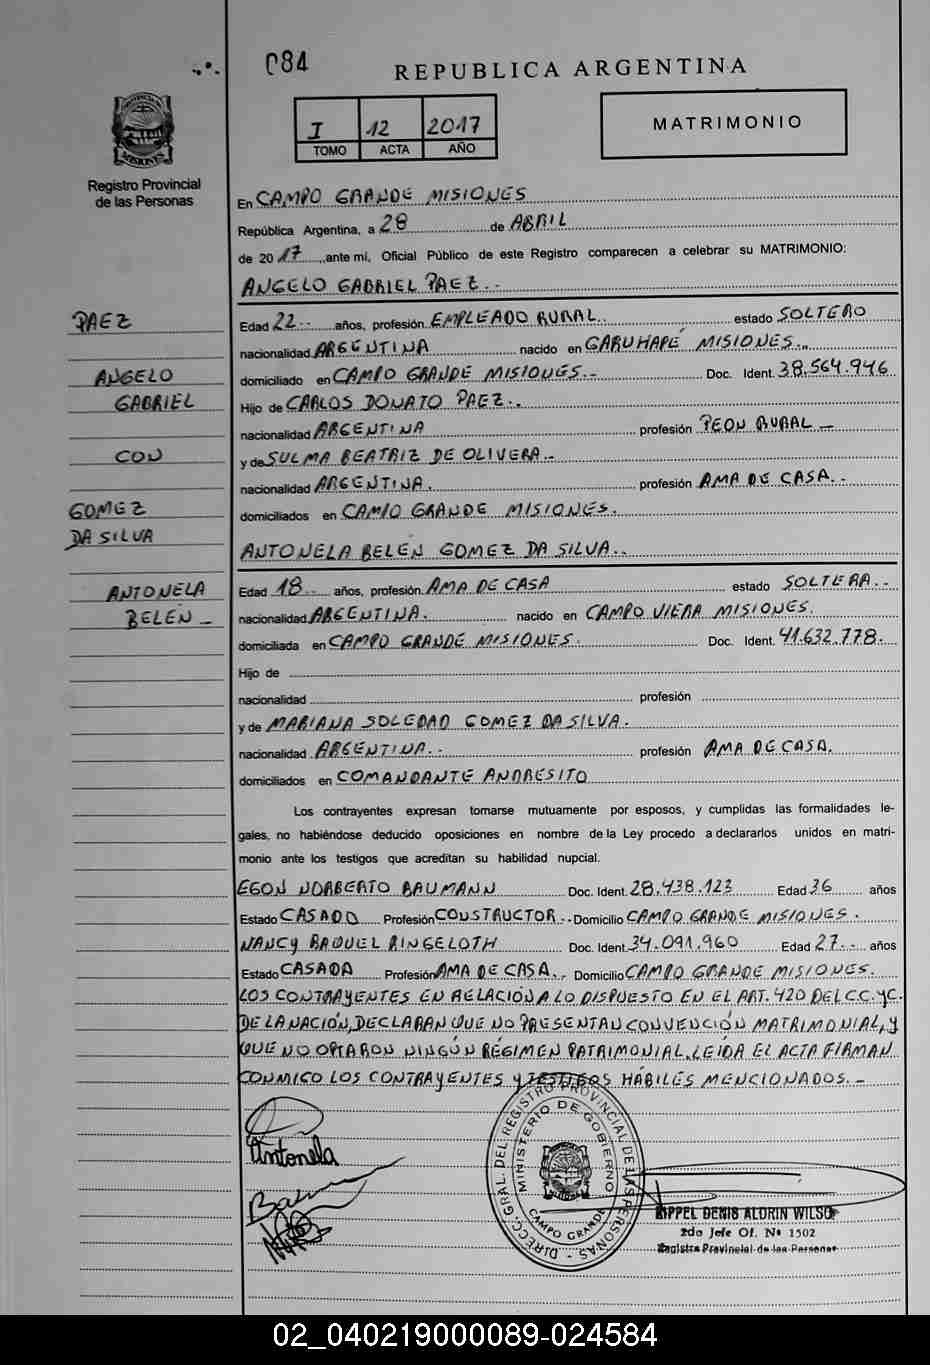 084
REPUBLICA ARGENTINA
I 12 2017
TOMO ACTA AÑO
MATRIMONIO
MISIONES
Registro Provincial
de las Personas
En CAMPO GRANDE MISIONES
República Argentina, a 28 de ABRIL
de 2017, ante mi, Oficial Público de este Registro comparecen a celebrar su MATRIMONIO:
ANGELO GABRIEL PAEZ.-
PAEZ
ANGELO
GABRIEL
CON
GOMEZ
DA SILVA
ANTONELA
BELEN -
Edad 22.- años, profesión EMPLEADO RURAL.. estado SOLTERO
nacionalidad ARGENTINA nacido en GARUHAPÉ MISIONES..
domiciliado en CAMPO GRANDE MISIONES.- Doc. Ident. 38.564.946
Hijo de CARLOS DONATO PAEZ..
nacionalidad ARGENTINA profesión PEON RURAL -
y de SULMA BEATRIZ DE OLIVERA.-
nacionalidad ARGENTINA. profesión AMA DE CASA.-
domiciliados en CAMPO GRANDE MISIONES.
ANTONELA BELÉN GOMEZ DA SILVA..
Edad 18.- años, profesión AMA DE CASA estado SOLTERA..
nacionalidad ARGENTINA. nacido en CAMPO VIERA MISIONES.
domiciliada en CAMPO GRANDE MISIONES. Doc. Ident. 41.632.778.
Hijo de
nacionalidad profesión
y de MARIANA SOLEDAD GOMEZ DA SILVA.
nacionalidad ARGENTINA.. profesión AMA DE CASA.
domiciliados en COMANDANTE ANDRESITO
Los contrayentes expresan tomarse mutuamente por esposos, y cumplidas las formalidades le-
gales, no habiéndose deducido oposiciones en nombre de la Ley procedo a declararlos unidos en matri-
monio ante los testigos que acreditan su habilidad nupcial.
EGON NORBERTO BAUMANN Doc. Ident. 28.438.123 Edad 36 años
Estado CASADO Profesión CONSTRUCTOR.- Domicilio CAMPO GRANDE MISIONES.
NANCY RAQUEL RINGELOTH Doc. Ident. 34.091.960 Edad 27.- años
Estado CASADA Profesión AMA DE CASA.. Domicilio CAMPO GRANDE MISIONES.
LOS CONTRAYENTES EN RELACIÓN A LO DISPUESTO EN EL ART. 420 DEL C.C. y C.
DE LA NACIÓN, DECLARAN QUE NO PRESENTAN CONVENCIÓN MATRIMONIAL, Y
QUE NO OPTARON NINGÚN RÉGIMEN PATRIMONIAL. LEIDA EL ACTA FIRMAN
CONMIGO LOS CONTRAYENTES y TESTIGOS HÁBILES MENCIONADOS.-
Antonela
DIRECC. GRAL. DEL REGISTRO PROVINCIAL DE LAS PERSONAS -
MINISTERIO DE GOBIERNO
CAMPO GRANDE
DENIS ALDRIN
2do Jefe Of. Nº 1502
Registro Provincial de las Personas
02_040219000089-024584